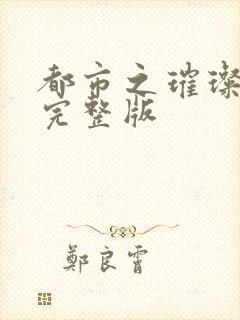 都市之璀璨
完整版
鄭良霄